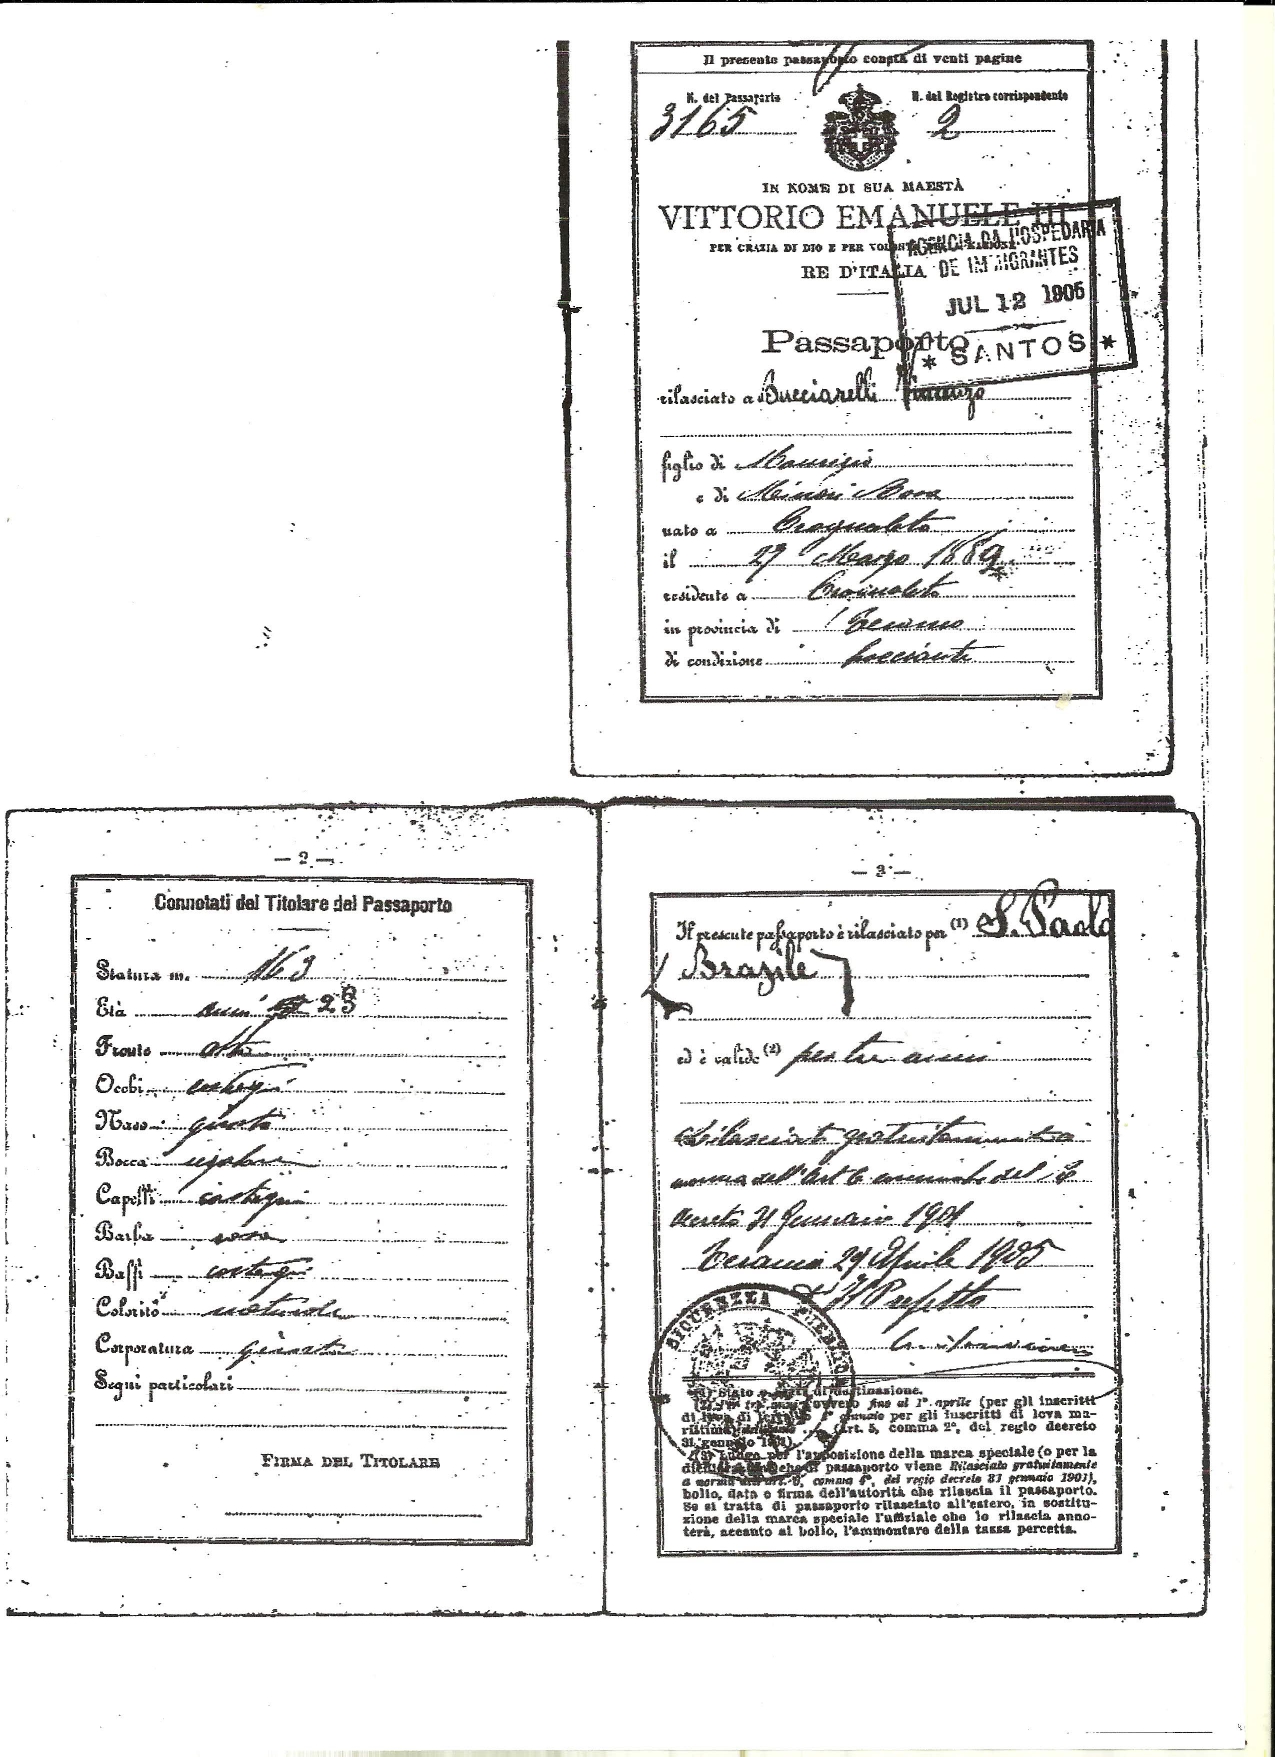 Il presente passaporto consta di venti pagine
N. del Passaporto
N. del Registro corrispondente
3165
2
IN NOME DI SUA MAESTÀ
VITTORIO EMANUELE III
PER GRAZIA DI DIO E PER VOLONTÀ
RE D'ITALIA
AGENCIA DA HOSPEDARIA
DE IMMIGRANTES
JUL 12 1905
* SANTOS *
Passaporto
rilasciato a Bucciarelli Vincenzo
figlio di Maurizio
e di Rosa
nato a Crognaleto
il 27 Marzo 1889
residente a Crognaleto
in provincia di Teramo
di condizione bracciante
— 2 —
Connotati del Titolare del Passaporto
Statura m. 163
Età anni 23
Fronte alta
Occhi castagni
Naso giusto
Bocca regolare
Capelli castagni
Barba rasa
Baffi castagni
Colorito naturale
Corporatura giusta
Segni particolari
FIRMA DEL TITOLARE
— 3 —
Il presente passaporto è rilasciato per (1) S. Paolo
Brazile
ed è valido (2) per tre anni
Rilasciato gratuitamente a
norma dell'Art 6 comma del R
decreto 31 Gennaio 1901
Teramo 29 Aprile 1905
Il Prefetto
SICUREZZA PUBBLICA
(1) Stato o di destinazione.
(2) Per tre anni ovvero fino al 1° aprile (per gli inscritti
di leva di terra) 1° gennaio per gli inscritti di leva ma-
rittima (Art. 5, comma 2°, del regio decreto
31 gennaio 1901).
(3) Luogo per l'apposizione della marca speciale (o per la
che il passaporto viene Rilasciato gratuitamente
a norma dell'art. 6, comma del regio decreto 31 gennaio 1901),
bollo, data e firma dell'autorità che rilascia il passaporto.
Se si tratta di passaporto rilasciato all'estero, in sostitu-
zione della marca speciale l'uffiziale che lo rilascia anno-
terà, accanto al bollo, l'ammontare della tassa percetta.